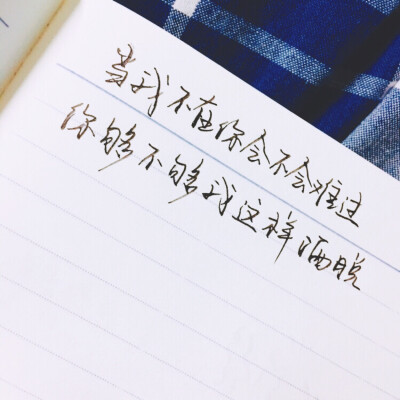 当我不在你会不会难过
你够不够我这样洒脱